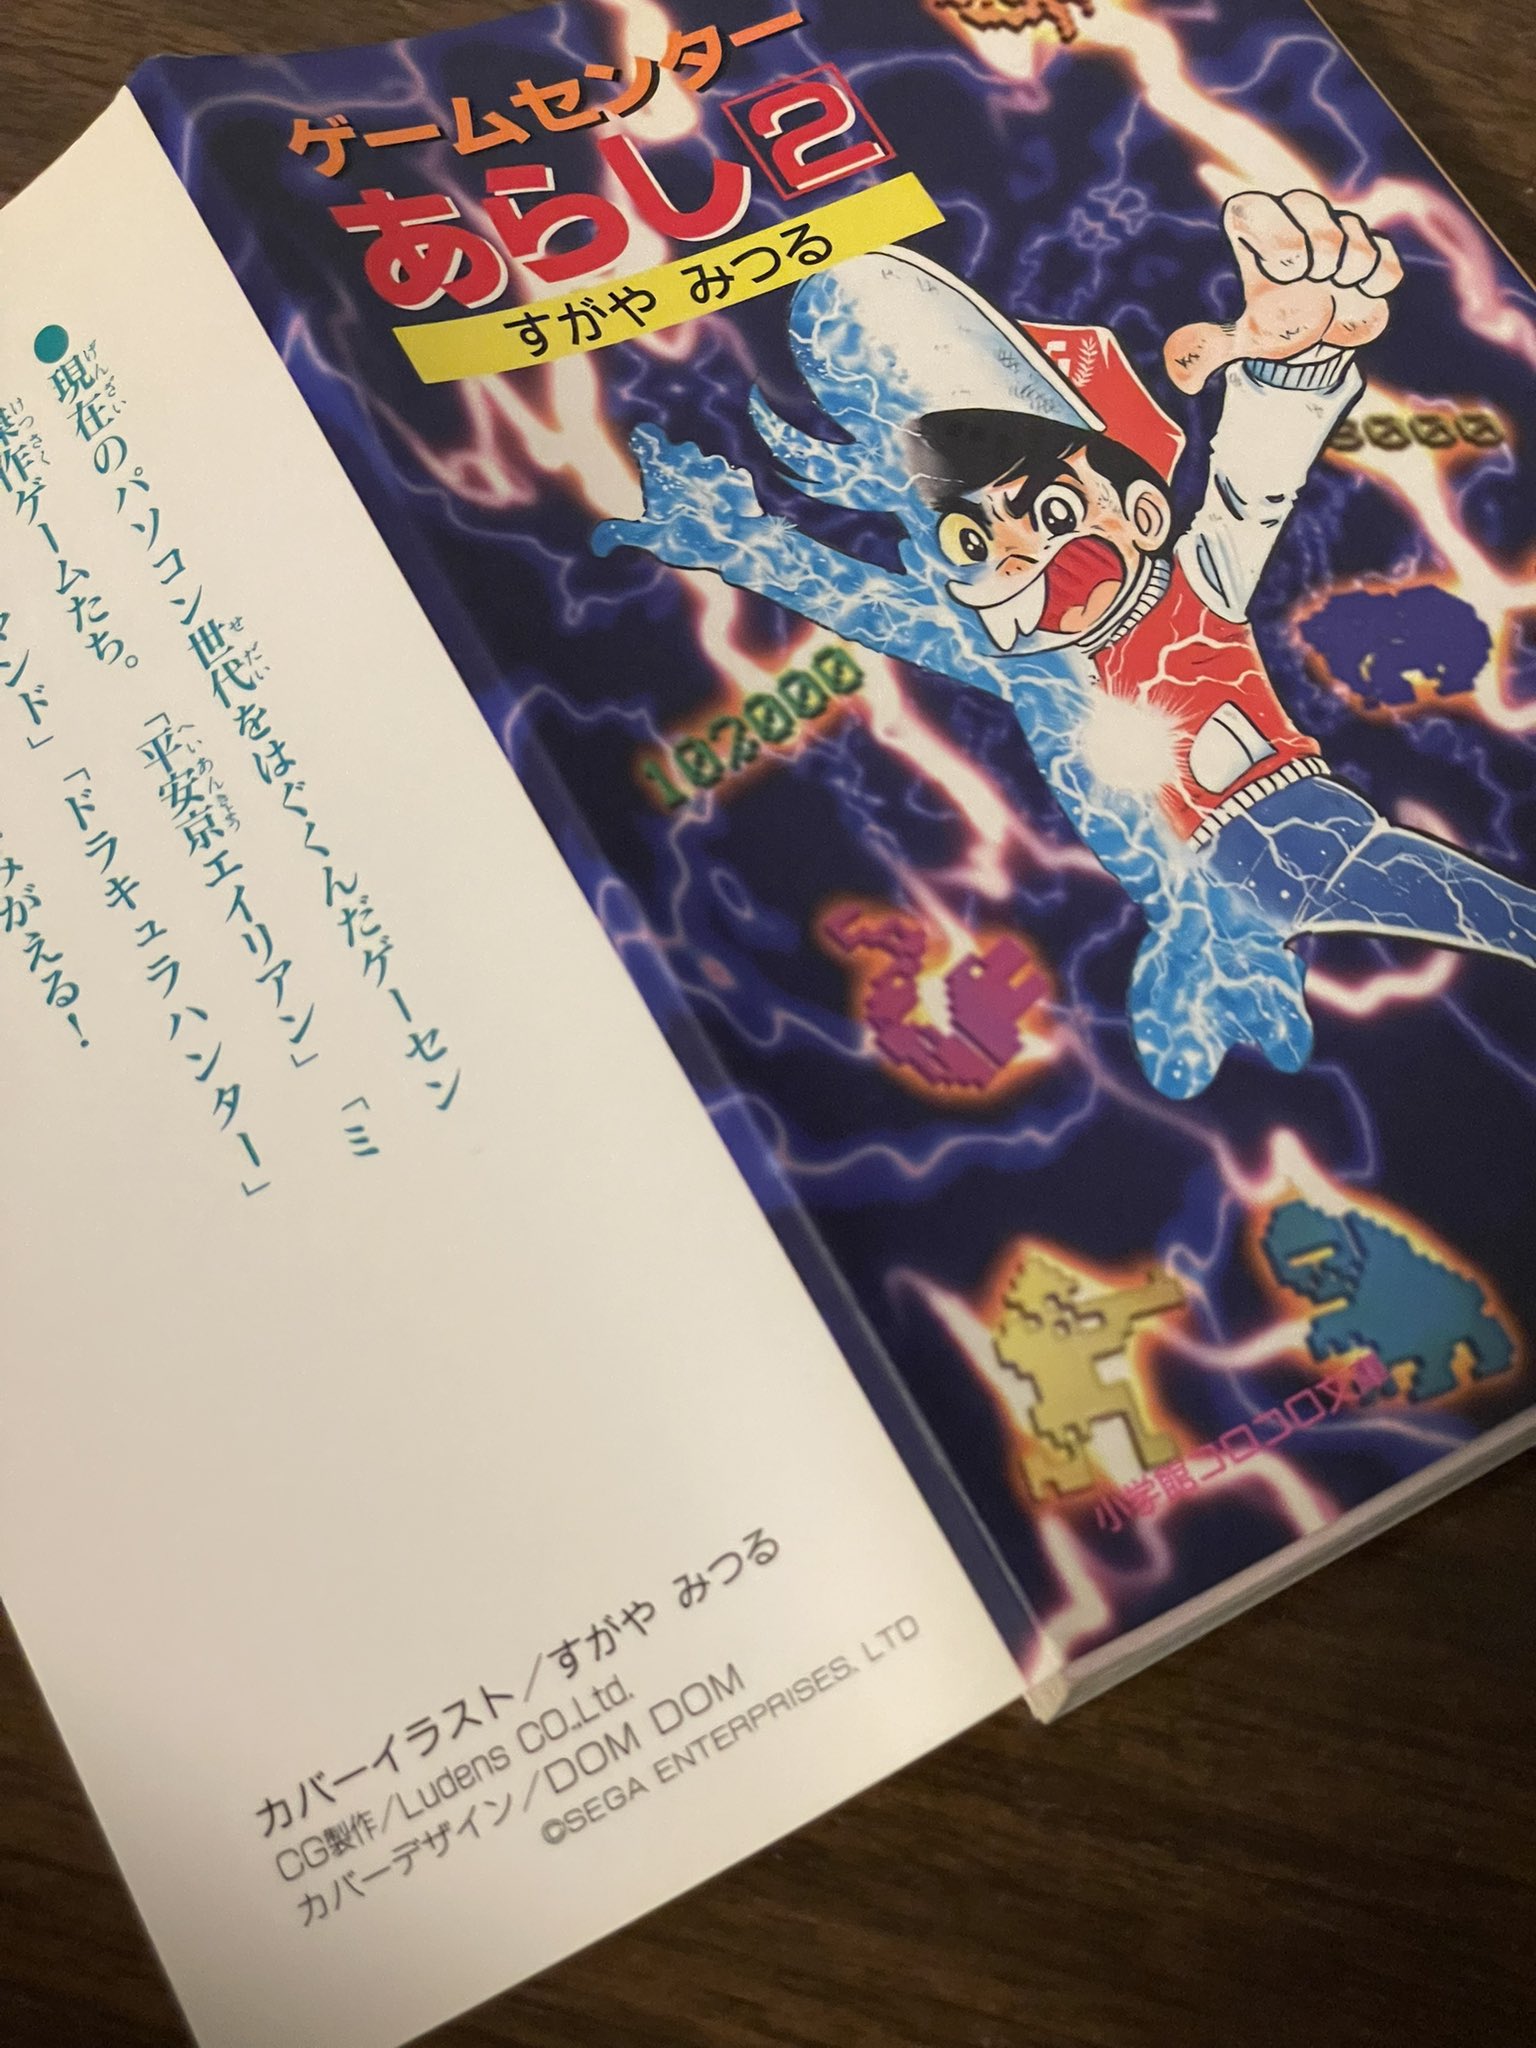 ゲームセンター
あらし2
すがや みつる
8000
102000
小学館コロコロ文庫
●現在のパソコン世代をはぐくんだゲーセン
傑作ゲームたち。「平安京エイリアン」「ミ
マンド」「ドラキュラハンター」
がえる!
カバーイラスト/すがや みつる
CG製作/Ludens CO.,Ltd.
カバーデザイン/DOM DOM
©SEGA ENTERPRISES, LTD